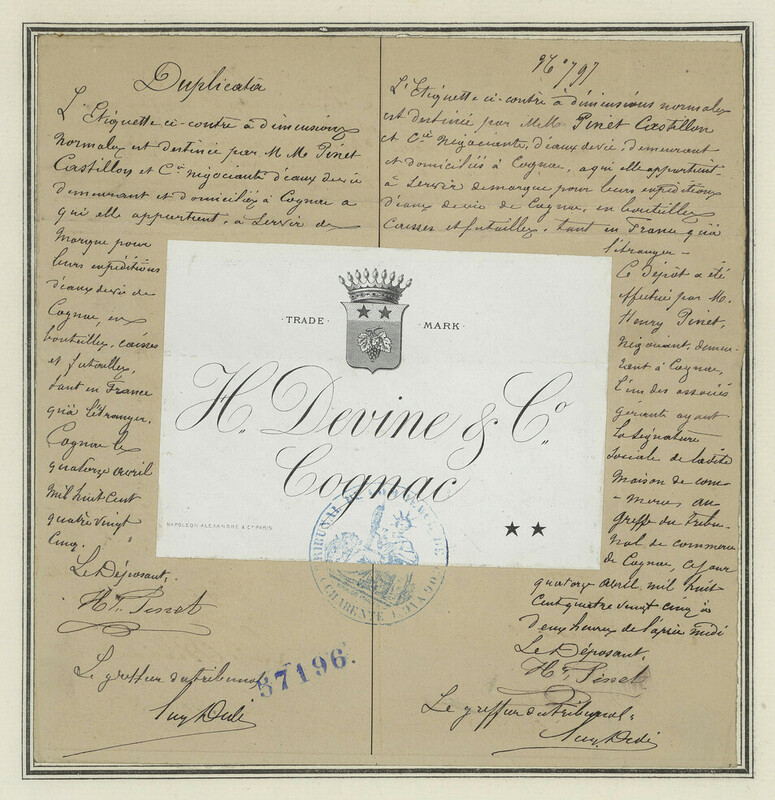 Duplicata
L'Etiquette ci-contre à dimensions
normales est destinée par M.M. Pinet
Castillon et Cie négociants d'eaux de vie
demeurant et domiciliés à Cognac a
qui elle appartient, à servir de
Marque pour
leurs expéditions
d'eaux de vie de
Cognac en
bouteilles, caisses
et futailles,
tant en France
qu'à l'étranger.
Cognac le
quatorze avril
mil huit cent
quatre vingt
cinq.
Le Déposant,
Hy Pinet
Le greffier du tribunal
57196.
No 797
L'Etiquette ci-contre à dimensions normales
est destinée par M.M. Pinet Castillon
et Cie négociants, d'eaux de vie, demeurant
et domiciliés à Cognac, a qui elle appartient
à servir de marque pour leurs expéditions
d'eaux de vie de Cognac, en bouteilles
Caisses et futailles, tant en France qu'à
l'étranger –
Ce Dépôt a été
effectué par M.
Henry Pinet,
négociant, demeu-
rant à Cognac,
l'un des associés
gérants ayant
la signature
sociale de ladite
Maison de com-
-merce, au
greffe du Tribu-
nal de commerce
de Cognac, ce jour
quatorze avril mil huit
Cent quatre vingt cinq à
Deux heures de l'après midi
Le Déposant,
Hy Pinet
Le greffier du Tribunal,
· TRADE MARK ·
H. Devine & Co.
Cognac
NAPOLEON ALEXANDRE & Cie PARIS
TRIBUNAL DE COMMERCE DE COGNAC
(CHARENTE)